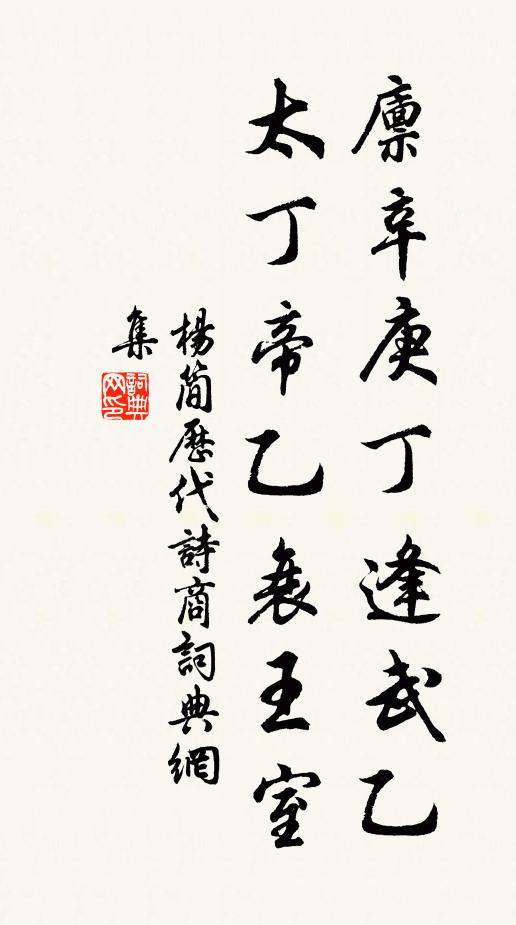 廪辛庚丁逢武乙
太丁帝乙衰王室
楊簡歷代詩商詞典網
集
詞典
网印